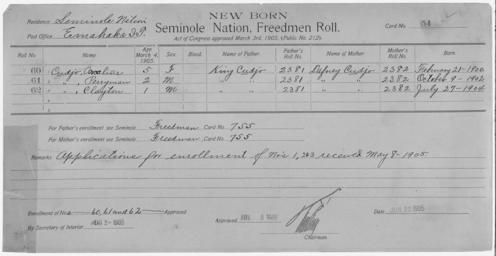 NEW BORN
Residence: Seminole Nation
Seminole Nation, Freedmen Roll.
Card No. 54
Post Office: Emahaka I.T.
Act of Congress approved March 3rd, 1905, (Public No. 212).
Roll No. Name Age March 4, 1905. Sex Blood. Name of Father. Father's Roll No. Name of Mother. Mother's Roll No. Born.
60 Cudjo, 5 F King Cudjo 2381 Dafney Cudjo 2382 February 21-1900
61 " , Perryman 2 M " " 2381 " " 2382 October 9-1902
62 " , Clayton 1 M " " 2381 " " 2382 July 27-1904
For Father's enrollment see Seminole Freedman Card No. 755
For Mother's enrollment see Seminole Freedman Card No. 755
Remarks: Applications for enrollment of Nos 1, 2&3 received May 8-1905
Enrollment of Nos 60, 61 and 62 Approved
By Secretary of Interior AUG 2-1905
Approved 1905
Chairman.
Date 1905